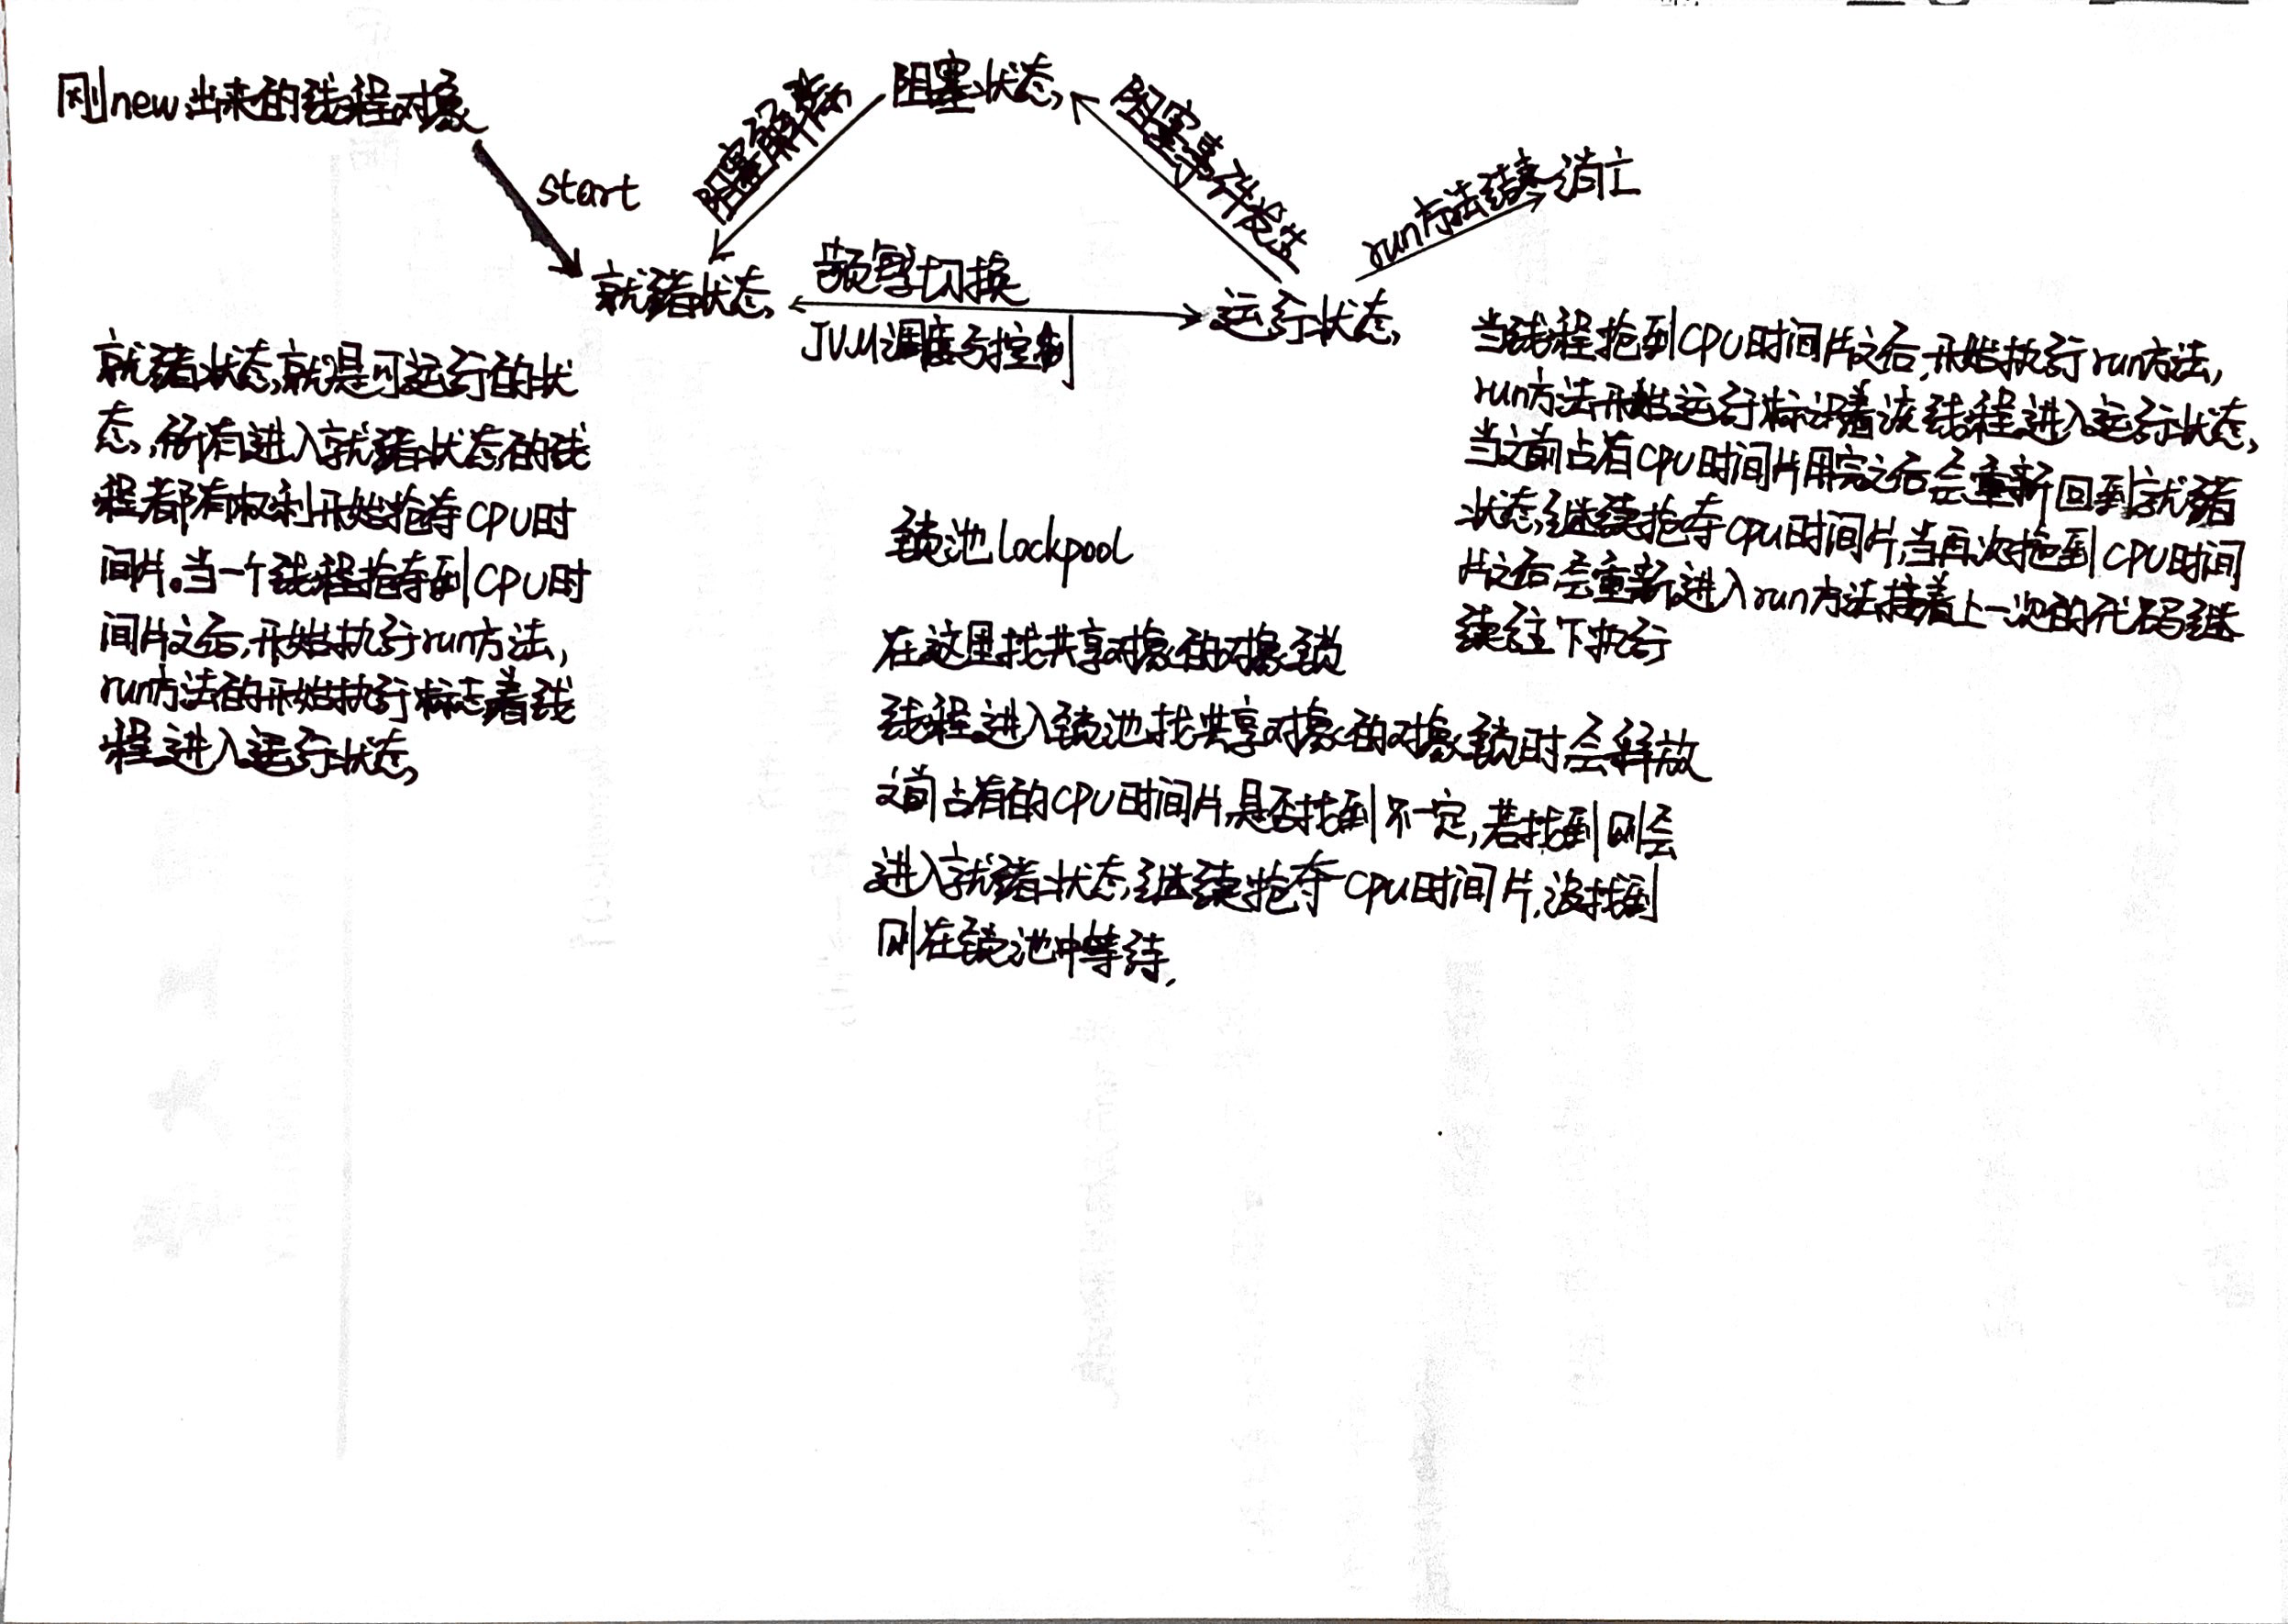 刚new出来的线程对象
start
阻塞解除
阻塞状态
阻塞事件发生
run方法结束
消亡
就绪状态
频繁切换
JVM调度与控制
运行状态
就绪状态,就是可运行的状
态,所有进入就绪状态的线
程都有权利开始抢夺CPU时
间片。当一个线程抢夺到CPU时
间片之后,开始执行run方法,
run方法的开始执行标志着线
程进入运行状态
锁池lockpool
在这里找共享对象的对象锁
线程进入锁池找共享对象的对象锁时会释放
之前占有的CPU时间片,是否找到不一定,若找到则会
进入就绪状态,继续抢夺CPU时间片,没找到
则在锁池中等待.
当线程抢到CPU时间片之后,开始执行run方法,
run方法开始运行标识着该线程进入运行状态,
当之前占有CPU时间片用完之后会重新回到就绪
状态,继续抢夺CPU时间片,当再次抢到CPU时间
片之后会重新进入run方法接着上一次的代码继
续往下执行